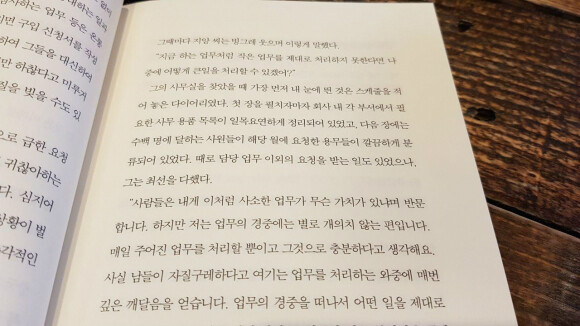 하는 업무 등은 온통
이면 구입 신청서를 작성
하여 그들을 대신하여
만 하찮다고 미루거
질을 빚을 수도 있
으로 급한 요청
귀찮아하는
다. 심지어
상황이 벌
각적인
그때마다 지암 씨는 빙그레 웃으며 이렇게 말했다.
"지금 하는 업무처럼 작은 업무를 제대로 처리하지 못한다면 나
중에 어떻게 큰일을 처리할 수 있겠어?"
그의 사무실을 찾았을 때 가장 먼저 내 눈에 띈 것은 스케줄을 적
어 놓은 다이어리였다. 첫 장을 펼치자마자 회사 내 각 부서에서 필
요한 사무 용품 목록이 일목요연하게 정리되어 있었고, 다음 장에는
수백 명에 달하는 사원들이 해당 월에 요청한 용무들이 깔끔하게 분
류되어 있었다. 때로 담당 업무 이외의 요청을 받는 일도 있었으나,
그는 최선을 다했다.
"사람들은 내게 이처럼 사소한 업무가 무슨 가치가 있냐며 반문
합니다. 하지만 저는 업무의 경중에는 별로 개의치 않는 편입니다.
매일 주어진 업무를 처리할 뿐이고 그것으로 충분하다고 생각해요.
사실 남들이 자질구레하다고 여기는 업무를 처리하는 와중에 매번
깊은 깨달음을 얻습니다. 업무의 경중을 떠나서 어떤 일을 제대로